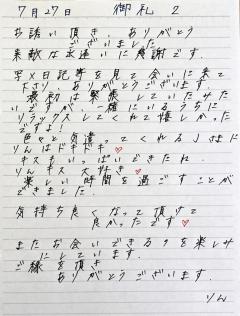 7月27日 御礼 2
お誘い頂き、ありがとう
ございました
素敵な出逢いに感謝です。
写メ日記等を見て会いに来て
下さり、ありがとうございます。
最初は緊張していたみた
いですが、一緒にいるうちに
リラックスしてくれて嬉しかった
ですよ!
色々と気遣ってくれるJさまに
りんはドキドキ♡
キスもいっぱいできたね
りんキス大好き♡
楽しい時間を過ごすことが
できました。
気持ち良くなって頂けて
良かったです♡
またお会いできるのを楽しみ
にしています。
ご縁を頂き
ありがとうございます.
りん